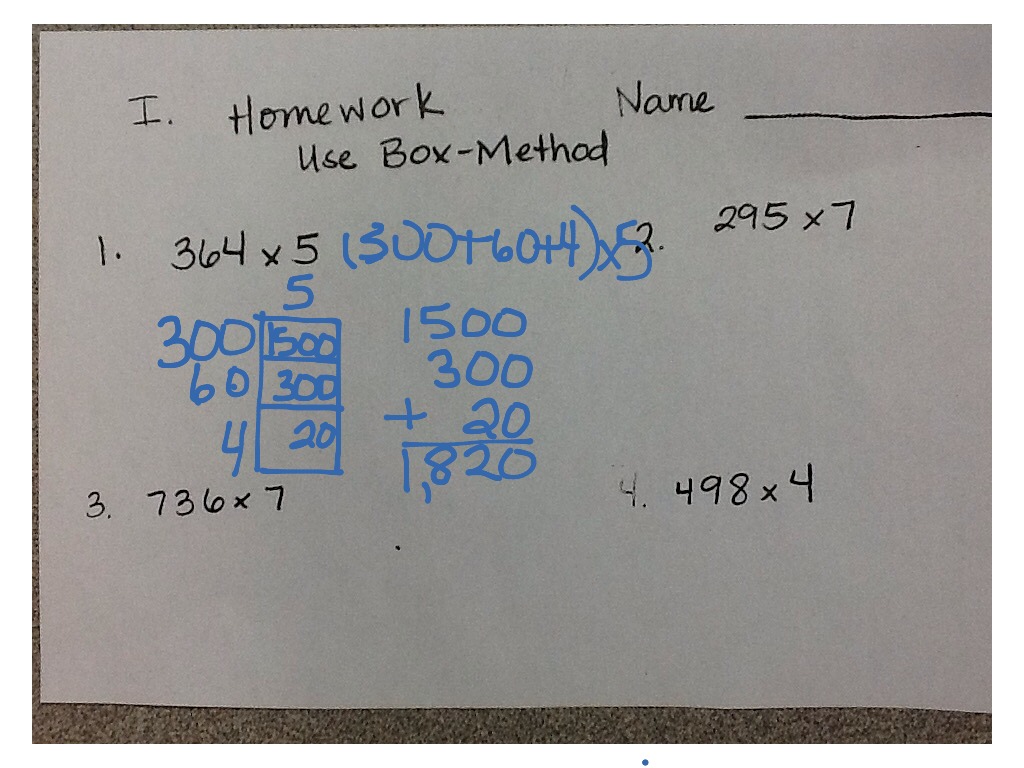 I. Homework Name
Use Box-Method
1. 364 x 5 (300+60+4)x5
2. 295 x 7
5
300 1500
60 300
4 20
1500
300
+ 20
1,820
3. 736 x 7
4. 498 x 4